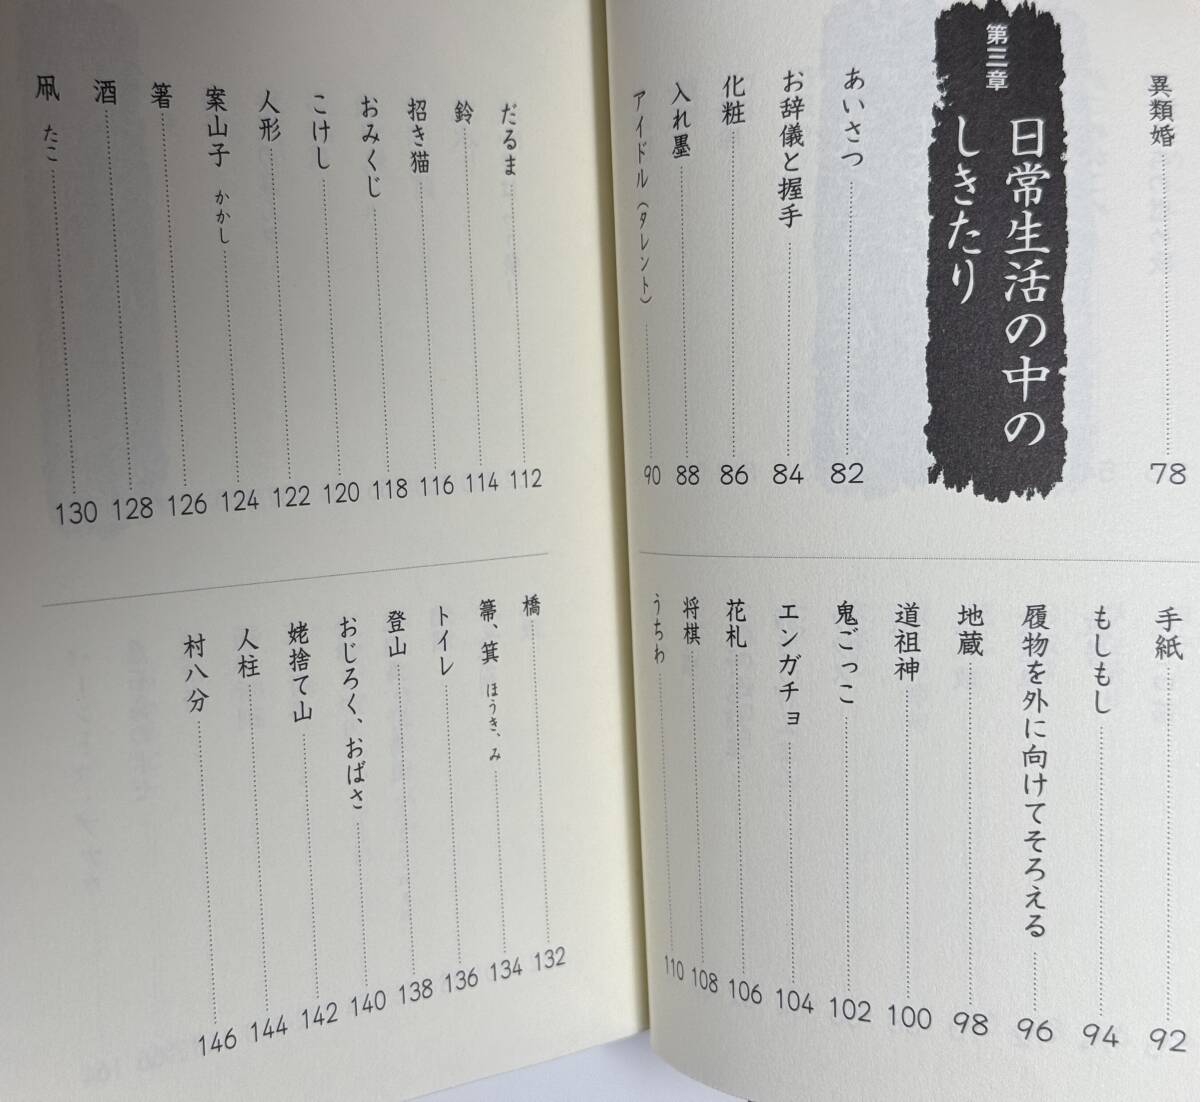 異類婚 78
第三章
日常生活の中の
しきたり
あいさつ 82
お辞儀と握手 84
化粧 86
入れ墨 88
アイドル（タレント） 90
手紙 92
もしもし 94
履物を外に向けてそろえる 96
地蔵 98
道祖神 100
鬼ごっこ 102
エンガチョ 104
花札 106
将棋 108
うちわ 110
だるま 112
鈴 114
招き猫 116
おみくじ 118
こけし 120
人形 122
案山子 かかし 124
箸 126
酒 128
凧 たこ 130
橋 132
箒、箕 ほうき、み 134
トイレ 136
登山 138
おじろく、おばさ 140
姥捨て山 142
人柱 144
村八分 146